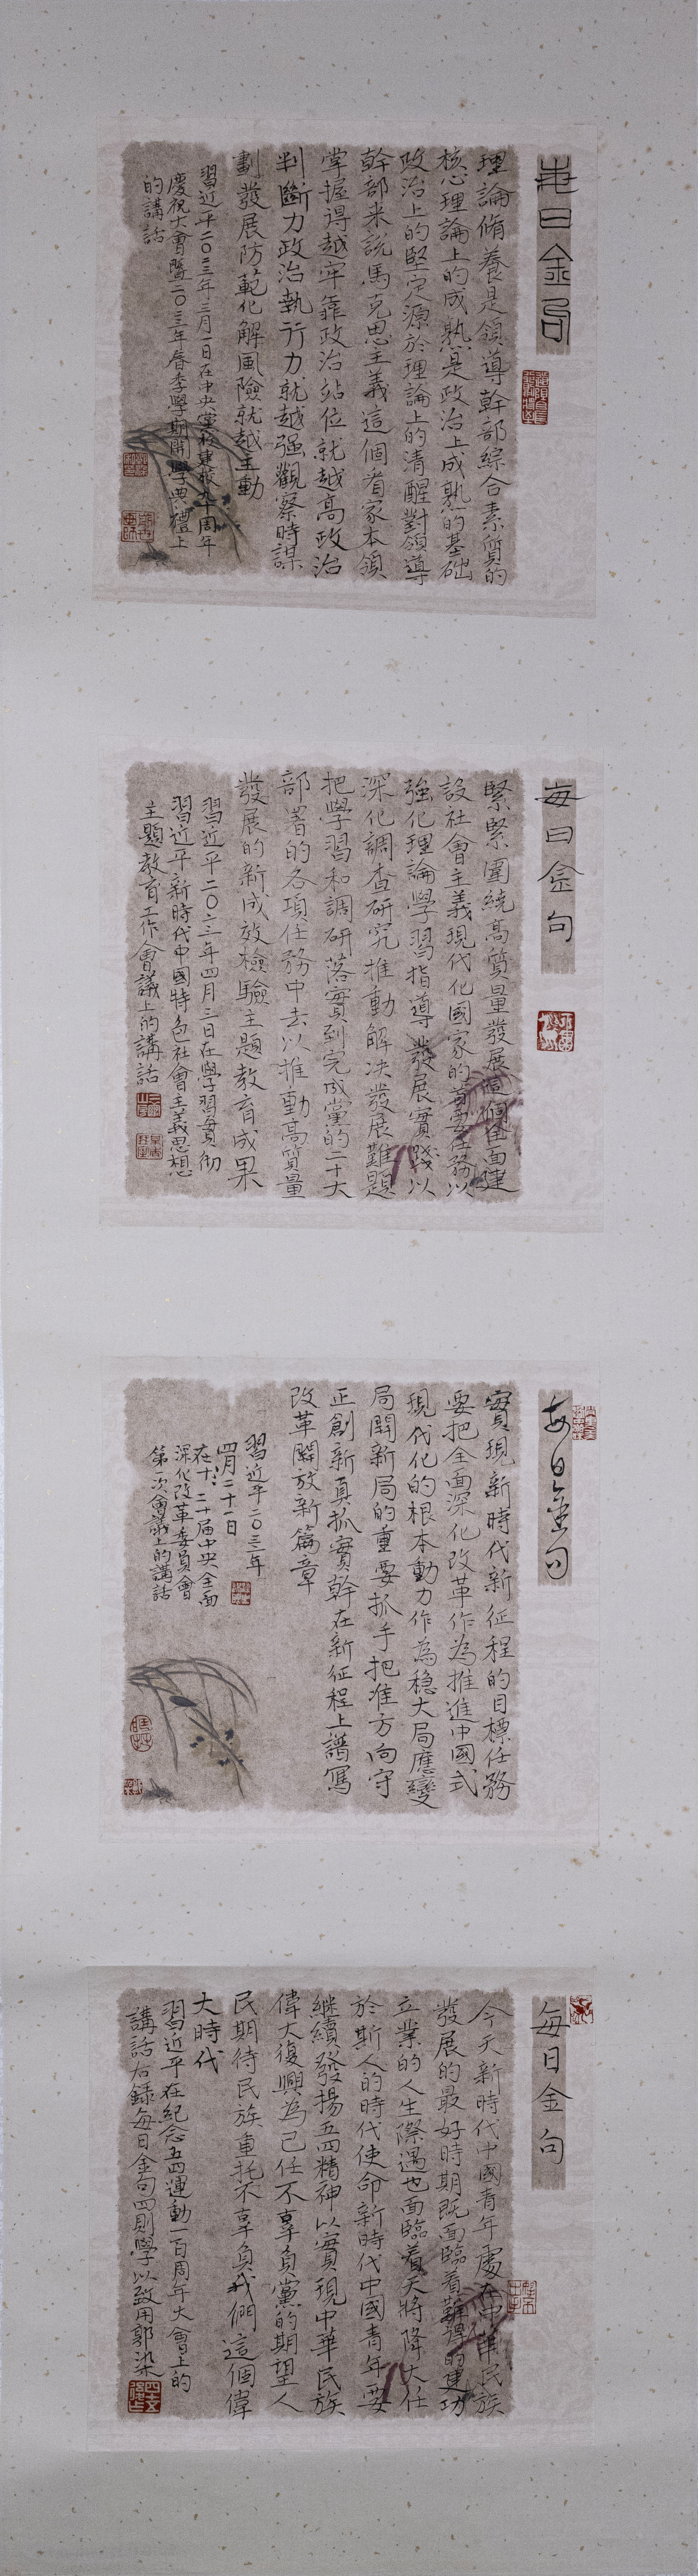 每日金句
理論脩養是領導幹部綜合素質的
核心理論上的成熟是政治上成熟的基础
政治上的堅定源於理論上的清醒對領導
幹部来説馬克思主義這個看家本領
掌握得越牢靠政治站位就越高政治
判斷力政治執行力就越强觀察時謀
劃發展防範化解風險就越主動
習近平二〇二三年三月一日在中央黨校建校九十周年
慶祝大會暨二〇二三年春季學期開學典禮上
的講話
每日金句
緊緊圍繞高質量發展這個全面建
設社會主義現代化國家的首要任務以
強化理論學習指導發展實踐以
深化調查研究推動解决發展難題
把學習和調研落實到完成黨的二十大
部署的各項任務中去以推動高質量
發展的新成效檢驗主題教育成果
習近平二〇二三年四月三日在學習貫彻
習近平新時代中國特色社會主義思想
主題教育工作會議上的講話
每日金句
實現新時代新征程的目標任務
要把全面深化改革作為推進中國式
現代化的根本動力作為稳大局應變
局開新局的重要抓手把准方向守
正創新真抓實幹在新征程上譜寫
改革開放新篇章
習近平二〇二三年
四月二十一日
在二十届中央全面
深化改革委員會
第一次會議上的講話
每日金句
今天新時代中國青年處在中華民族
發展的最好時期既面臨着難得的建功
立業的人生際遇也面臨着天將降大任
於斯人的時代使命新時代中國青年要
継續發揚五四精神以實現中華民族
偉大復興為己任不辜負黨的期望人
民期待民族重托不辜負我們這個偉
大時代
習近平在紀念五四運動一百周年大會上的
講話右録每日金句四則學以致用郭染